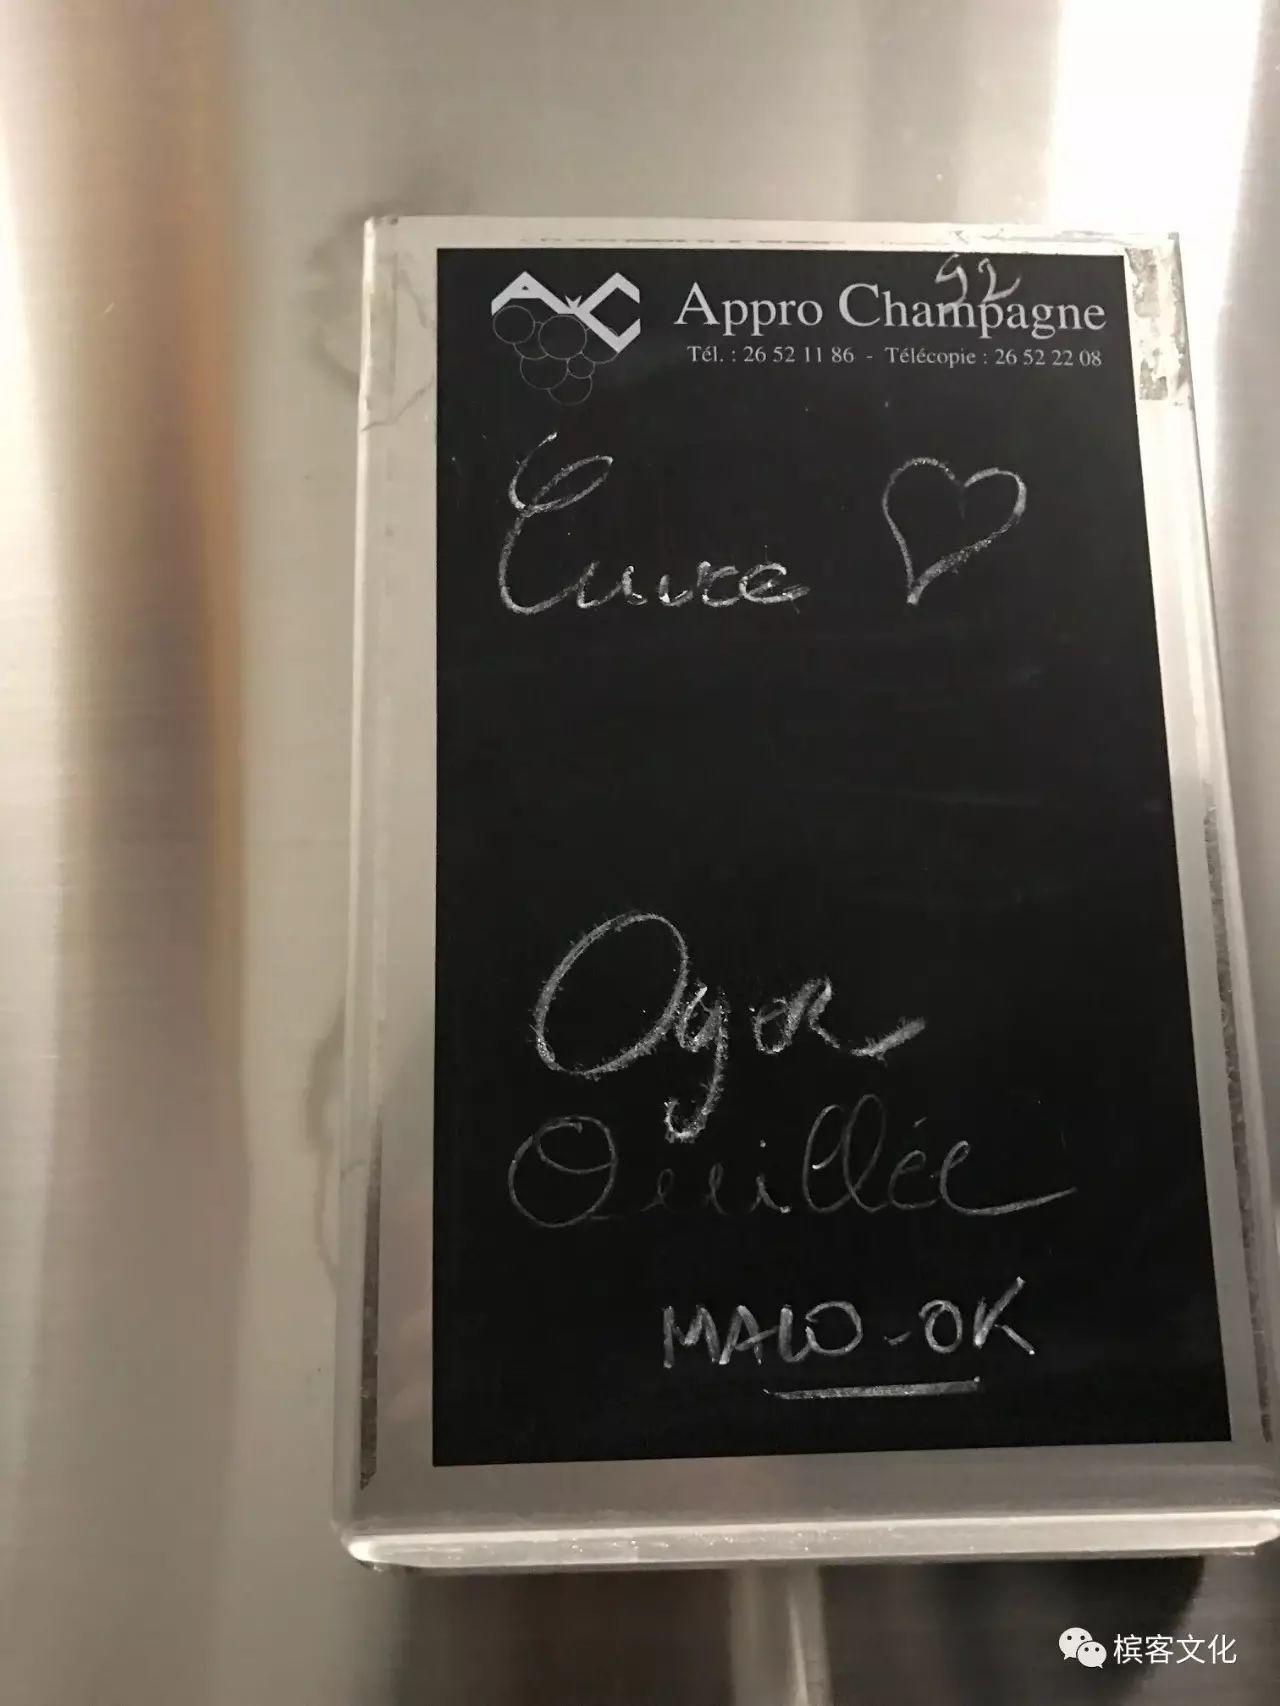 92
AC Appro Champagne
Tél. : 26 52 11 86 - Télécopie : 26 52 22 08
Cuvée
Oger
Ouillée
MALO-OK
槟客文化